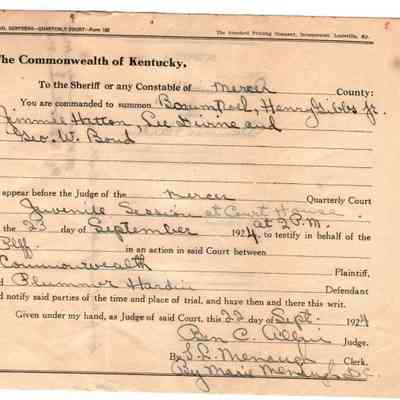 QUARTERLY COURT—Form 102
The Standard Printing Company, Incorporated, Louisville, Ky.
The Commonwealth of Kentucky,
To the Sheriff or any Constable of Mercer County:
You are commanded to summon Henry Gibbs Jr.
Jimmie Hatton, Lee Divine and
Geo. W. Bond
appear before the Judge of the Mercer Quarterly Court
Juvenile Session at Court House
at 2 P.M.
the 23 day of September 1924, to testify in behalf of the
Plff. in an action in said Court between
Commonwealth Plaintiff,
Plummer Hardin Defendant
d notify said parties of the time and place of trial, and have then and there this writ.
Given under my hand, as Judge of said Court, this 22 day of Sept. 1924
Ben C. Allin Judge.
By S.L. Menaugh Clerk.
By Marie Menaugh D.C.